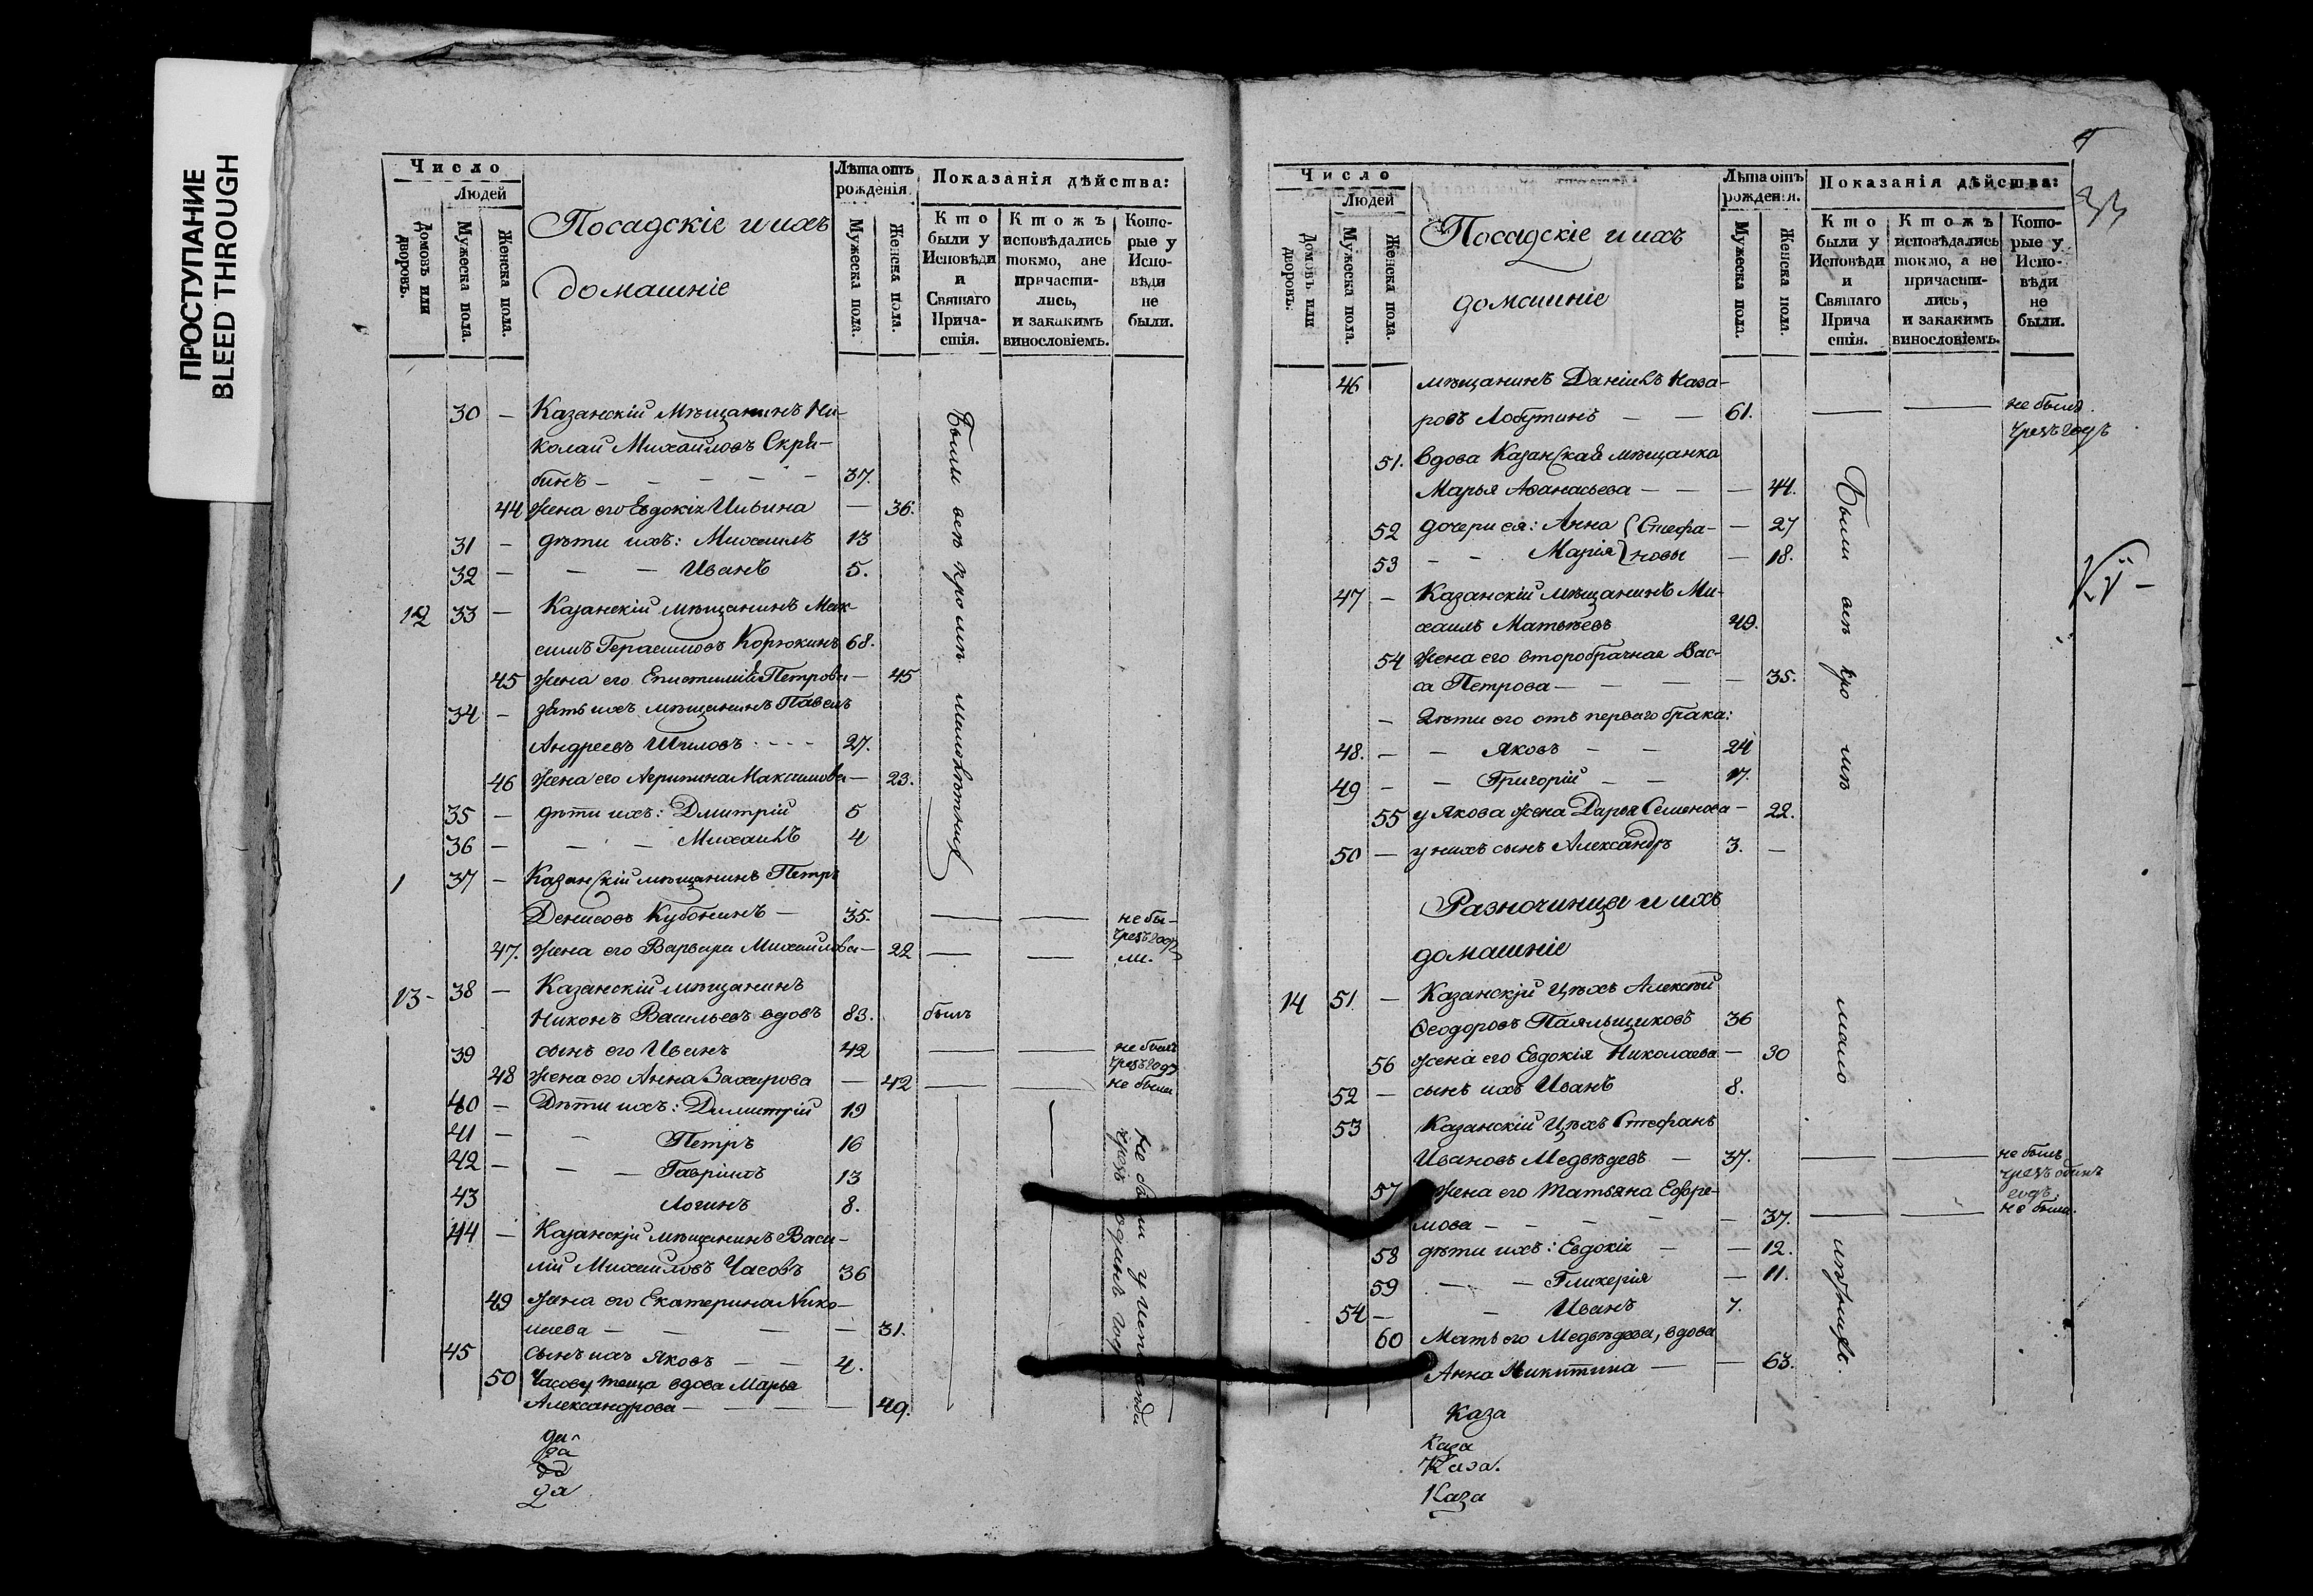 ПРОСТУПАНИЕ
BLEED THROUGH
Число
Людей
Домовъ или дворовъ.
Мужеска пола.
Женска пола.
Посадскіе и ихъ
домашніе
Лѣта отъ рожденія
Мужеска пола.
Женска пола.
Показанія дѣйства:
Кто были у Исповѣди и Святаго Прича-стія.
Ктожъ исповѣдались токмо, ане причасти-лись, и закакимъ винословіемъ.
Кото-рые у Испо-вѣди не были.
30 — Казанскій Мѣщанинъ Ни-
колай Михайловъ Скря-
бинъ — — — — — 37.
44 жена его Евдокія Ильина — 36.
31 — дѣти ихъ: Михаилъ 13
32 — — — Иванъ 5.
12 33 — Казанскій мѣщанинъ Мак-
симъ Герасимовъ Корюкинъ 68.
45 жена его Епистимія Петрова — 45
34 — зять ихъ мѣщанинъ Павелъ
Андреевъ Шиловъ - - - 27.
46 жена его Агрипина Максимова — 23.
35 — дѣти ихъ: Дмитрій 5
36 — — — Михаилъ 4
Были всѣ кромѣ малолѣтних
1 37 — Казанскій мѣщанинъ Петръ
Денисовъ Кубонинъ — 35. — — не бы-
чрезъ годъ
47. жена его Варвара Михаилова — 22 — — ли.
13 - 38 — Казанскій мѣщанинъ
Никонъ Васильевъ вдовъ 83. былъ
39 сынъ его Иванъ 42 — — не былъ
чрезъ годъ
48 жена его Анна Захарова — 42 — — не была
40 — Дѣти ихъ: Димитрій 19
41 — — Петръ 16
42 — — — Гавріилъ 13
43 Логинъ 8.
44 — Казанскій мѣщанинъ Васи-
лій Михаиловъ Часовъ 36
49 жена его Екатерина Нико-
лаева — — — — 31.
45 сынъ ихъ Яковъ — — 4.
50 Часову теща вдова Марья
Александрова — — — — 49.
Не были у исповѣди
чрезъ одинъ годъ
да
да
да
4
33
Число
Людей
Домовъ или дворовъ.
Мужеска пола.
Женска пола.
Посадскіе и ихъ
домашніе
Лѣта отъ рожденія.
Мужеска пола.
Женска пола.
Показанія дѣйства:
Кто были у Исповѣди и Святаго Прича стія.
Ктожъ исповѣдались токмо, а не причасти-лись, и закакимъ винословіемъ.
Кото-рые у Испо-вѣди не были.
46 мѣщанинъ Даніилъ Наза-
ровъ Лобутинъ — — 61. — — не былъ.
чрезъ годъ
51. вдова Казанская мѣщанка
Марья Аѳанасьева — — — 44.
52 дочери ея: Анна { Стефа- — 27
53 - - Марія } новы — 18.
47 — Казанскій мѣщанинъ Ми-
хаилъ Матвѣевъ 49.
54 жена его второбрачная Вас-
са Петрова — — — — 35.
— Дѣти его отъ перваго брака:
48. — — Яковъ — — 24
49 — — Григорій — — 17.
55 у Якова жена Дарья Семенова — 22.
50 — у нихъ сынъ Александръ 3. —
Разночинцы и ихъ
домашніе
14 51 — Казанскій Цѣхъ Алексѣй
Ѳеодоровъ Паяльщиковъ 36
56 жена его Евдокія Николаева — 30
52 — сынъ ихъ Иванъ 8.
53 Казанскій Цѣхъ Стефанъ
Ивановъ Медвѣдевъ — 37. — — не былъ
чрезъ одинъ
годъ
57 жена его Татьяна Ефре-
мова — — — — — 37. — — не была.
58 дѣти ихъ: Евдокія — — 12.
59 — — Гликерія — 11.
54 — — Иванъ 7.
60 Мать его Медвѣдева, вдова
Анна Никитина — — 63.
Были всѣ кро мѣ мало лѣтних.
Каза
Каза
Каза.
Каза